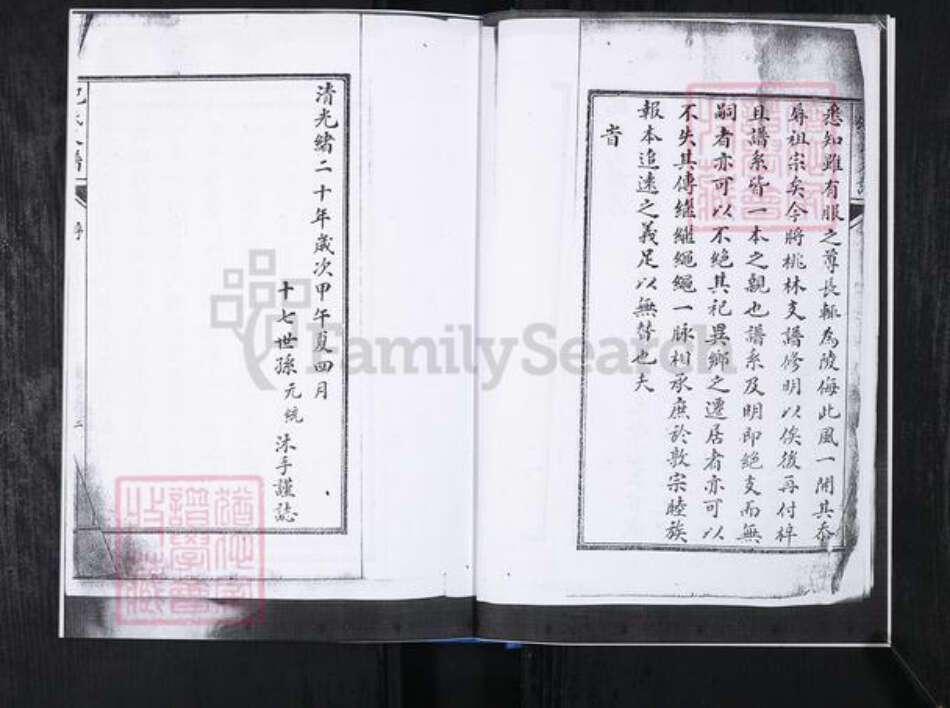 悉知雖有服之尊長輒為陵侮此風一開其忝
辱祖宗矣今將桃林支譜修明以俟後再付梓
且譜系皆一本之親也譜系及明即絕支而無
嗣者亦可以不絕其祀異鄉之遷居者亦可以
不失其傳繼繼繩繩一脉相承庶於敦宗睦族
報本追遠之義足以無替也夫
旹
清光緒二十年歲次甲午夏四月
十七世孫元統沐手謹誌
序
三
FamilySearch